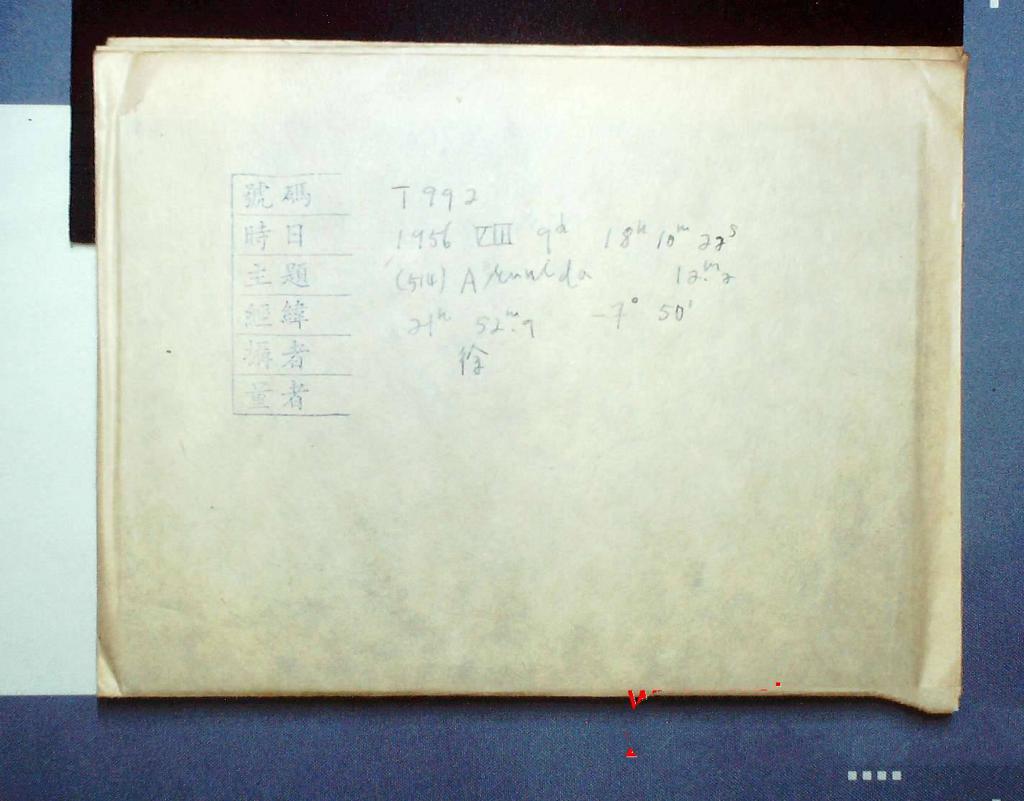 號碼 T 992
時日 1956 VIII 9ᵈ 18ʰ 10ᵐ 22ˢ
主題 (514) Armida 12ᵐ.2
經緯 21ʰ 52ᵐ.9 -7° 50'
攝者 徐
量者